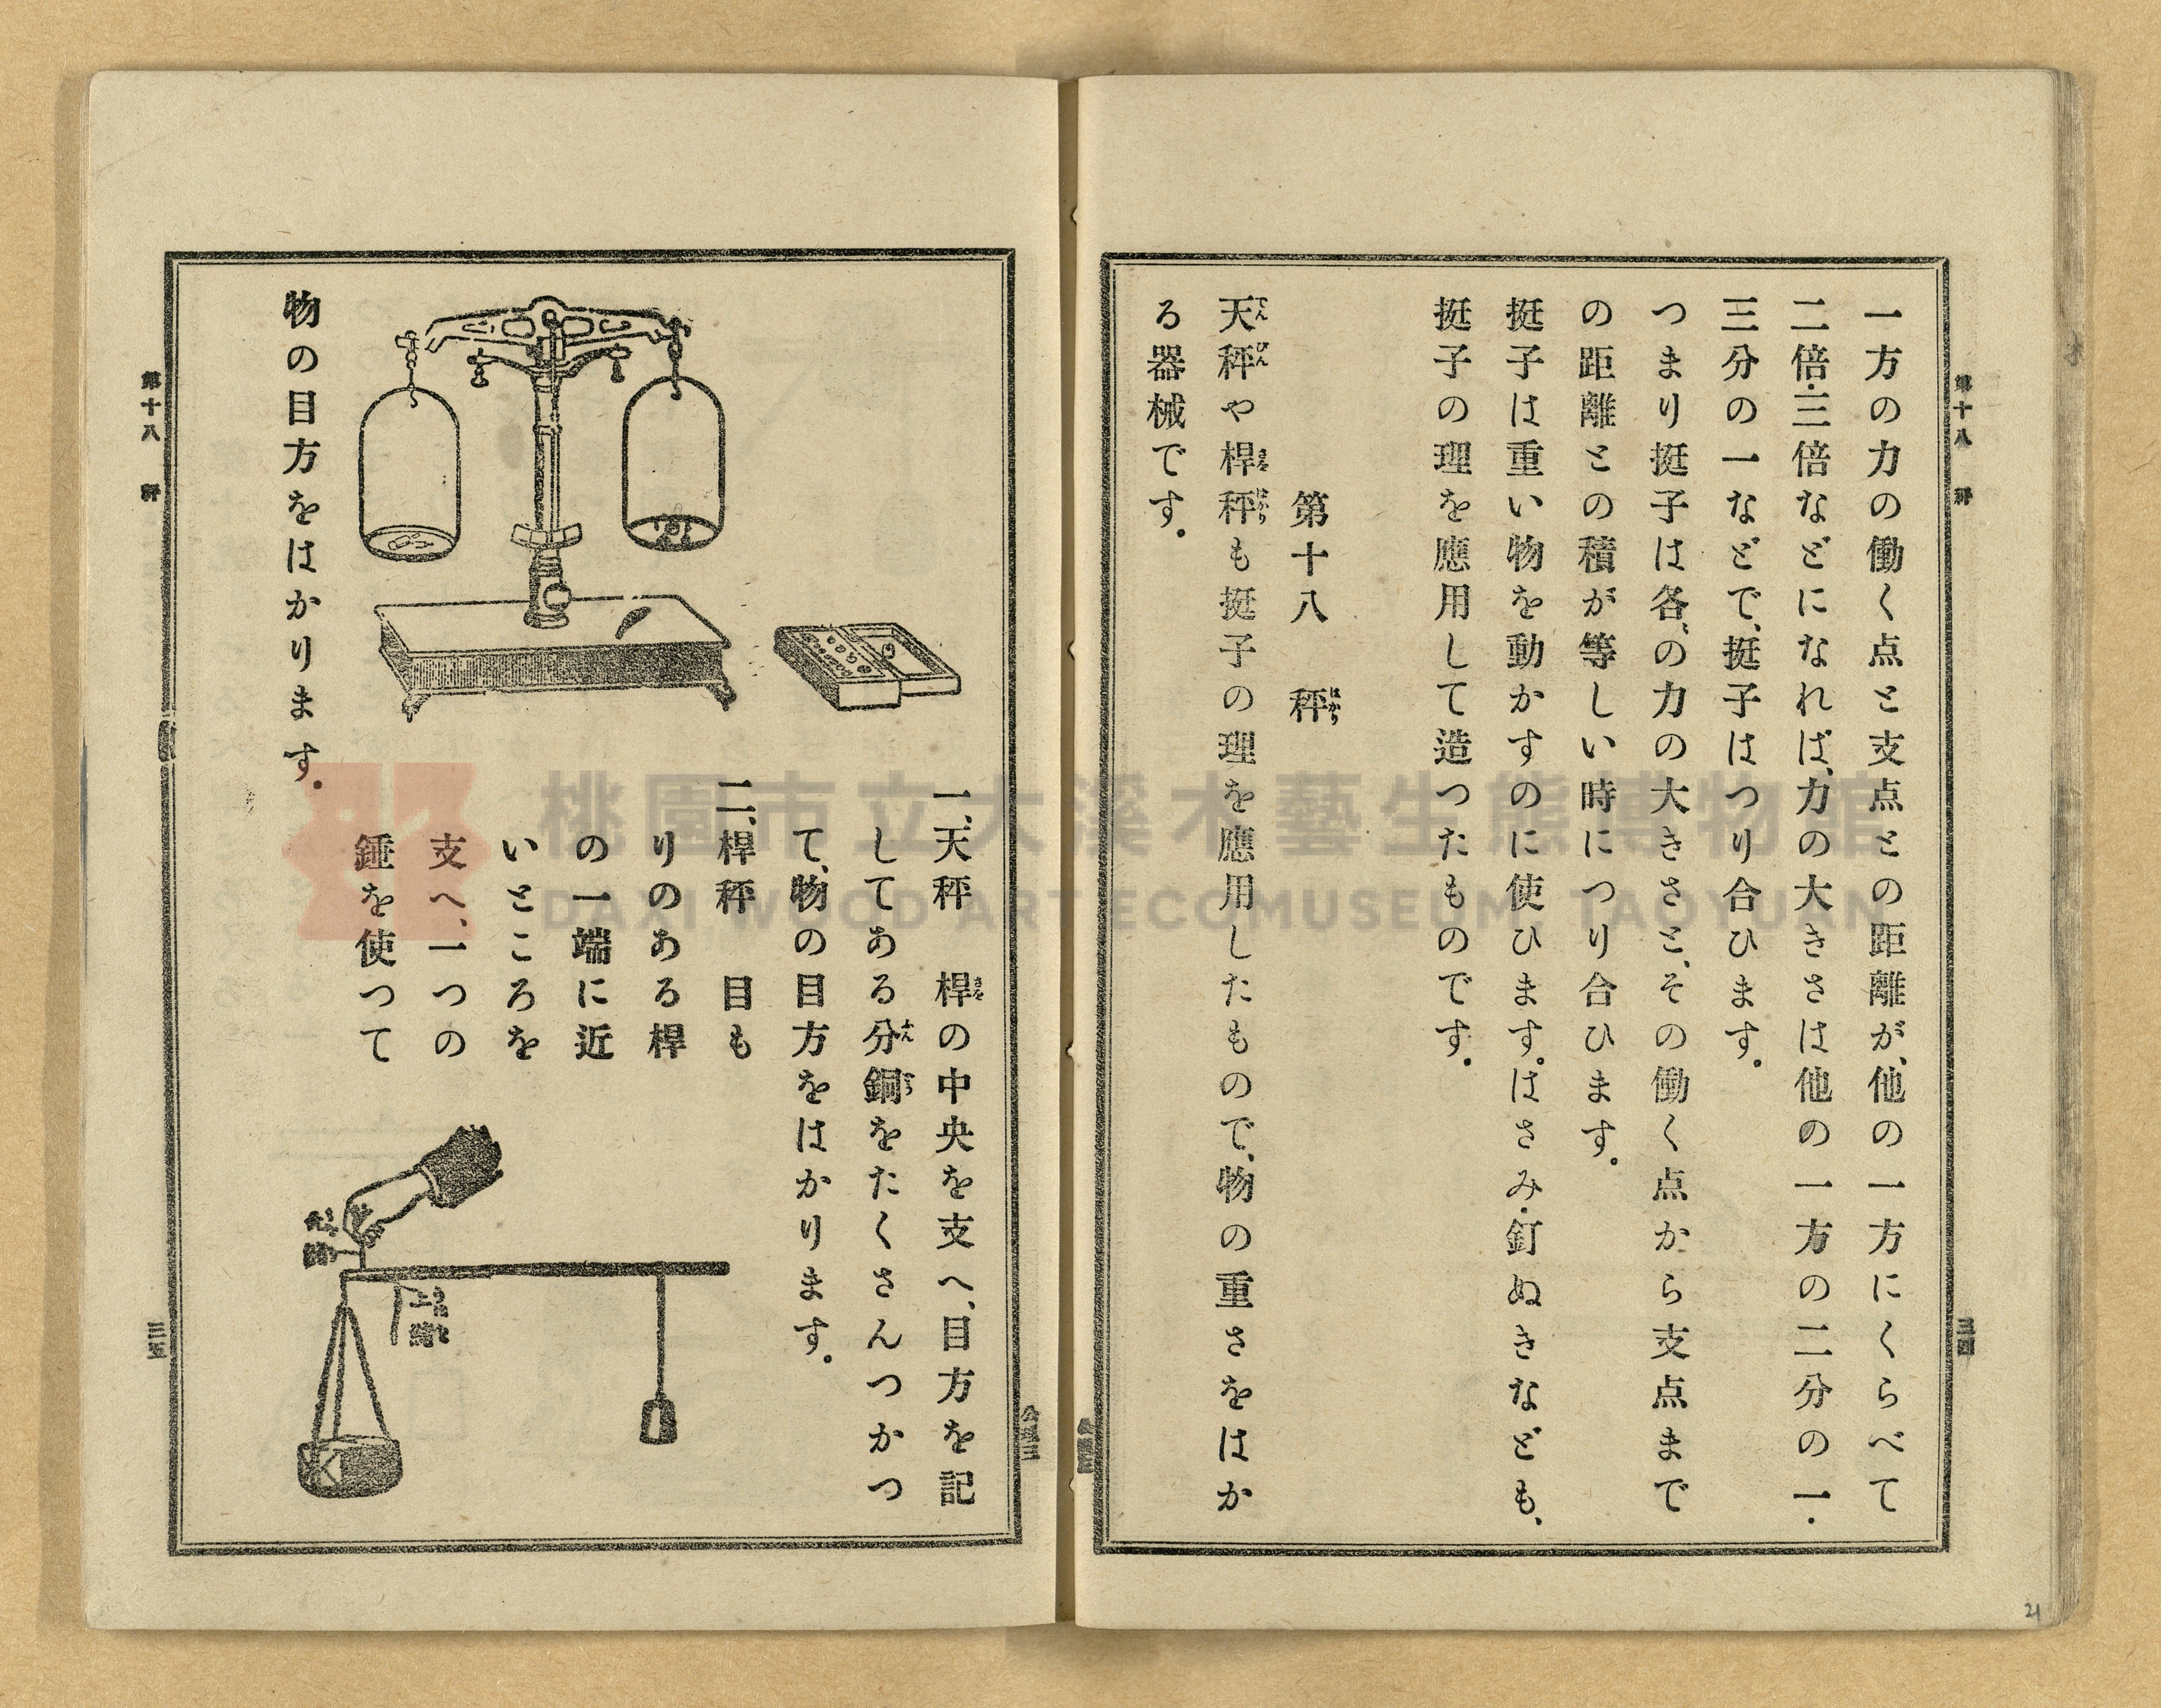 第十八 秤
三四
一方の力の働く点と支点との距離が、他の一方にくらべて
二倍・三倍などになれば、力の大きさは他の一方の二分の一・
三分の一などで、挺子はつり合ひます。
つまり挺子は各〻の力の大きさと、その働く点から支点まで
の距離との積が等しい時につり合ひます。
挺子は重い物を動かすのに使ひます。はさみ・釘ぬきなども、
挺子の理を應用して造つたものです。
第十八 秤はかり
天てん秤びんや桿さを秤ばかりも挺子の理を應用したもので、物の重さをはか
る器械です。
一、天秤 桿さをの中央を支へ、目方を記
してある分ふん銅どうをたくさんつかつ
て、物の目方をはかります。
二、桿秤 目も
りのある桿
の一端に近
いところを
支へ、一つの
錘を使つて
物の目方をはかります。
第十八 秤
三五
桃園市立大溪木藝生態博物館
DAXI WOOD ART ECOMUSEUM, TAOYUAN
21